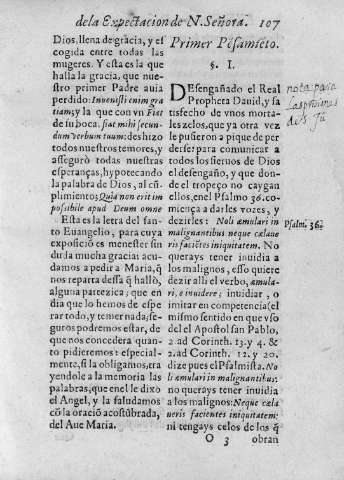 dela Expectacion de N. Señora. 107
Dios, llena de gracia, y es
cogida entre todas las
mugeres. Y esta es la que
halla la gracia, que nue
stro primer Padre auia
perdido: Inuenisti enim gra
tiam; y la que con vn Fiat
de su boca. fiat mihi secun
dum verbum tuum: deshizo
todos nuestros temores, y
assegurò todas nuestras
esperanças, hypotecando
la palabra de Dios, al cũ
plimiento: Quia non erit im
possibile apud Deum omne
Esta es la letra del san
to Euangelio, para cuya
exposiciõ es menester sin
duda mucha gracia: acu
damos a pedir a Maria, q̃
nos reparta dessa q̃ hallò,
alguna partezica; que en
dia que lo hemos de espe
rar todo, y temer nada; se
guros podremos estar, de
que nos concedera quan
to pidieremos: especial-
mente, si la obligamos, tra
yendole a la memoria las
palabras, que en el le dixo
el Angel, y la saludamos
cõ la oraciõ acostũbrada,
del Aue Maria.
Primer Pẽsamiẽto.
§. I.
DEsengañado el Real
Propheta Dauid, y sa
tisfecho de vnos morta-
les zelos, que ya otra vez
le pusieron a pique de per
derse: para comunicar a
todos los sieruos de Dios
el desengaño, y que don-
de el tropeço no caygan
ellos, en el Psalmo 36. co-
mença a darles vozes, y
dezirles: Noli æmulari in
malignantibus neque zelaue
ris faciẽtes iniquitatem. No
querays tener inuidia a
los malignos, esso quiere
dezir alli el verbo, æmula-
ri, æ inuidere; inuidiar, o
imitar en competencia (el
mismo sentido en que vsò
del el Apostol san Pablo,
2. ad Corinth. 13. y 4. &
2. ad Corinth. 12. y 20.
dize pues el Psalmista. No
li æmulari in malignantibus:
no querays tener inuidia
a los malignos: Neque zela
ueris facientes iniquitatem;
ni tengays celos de los q̃
O 3 obran
nota para
Psalm. 36.